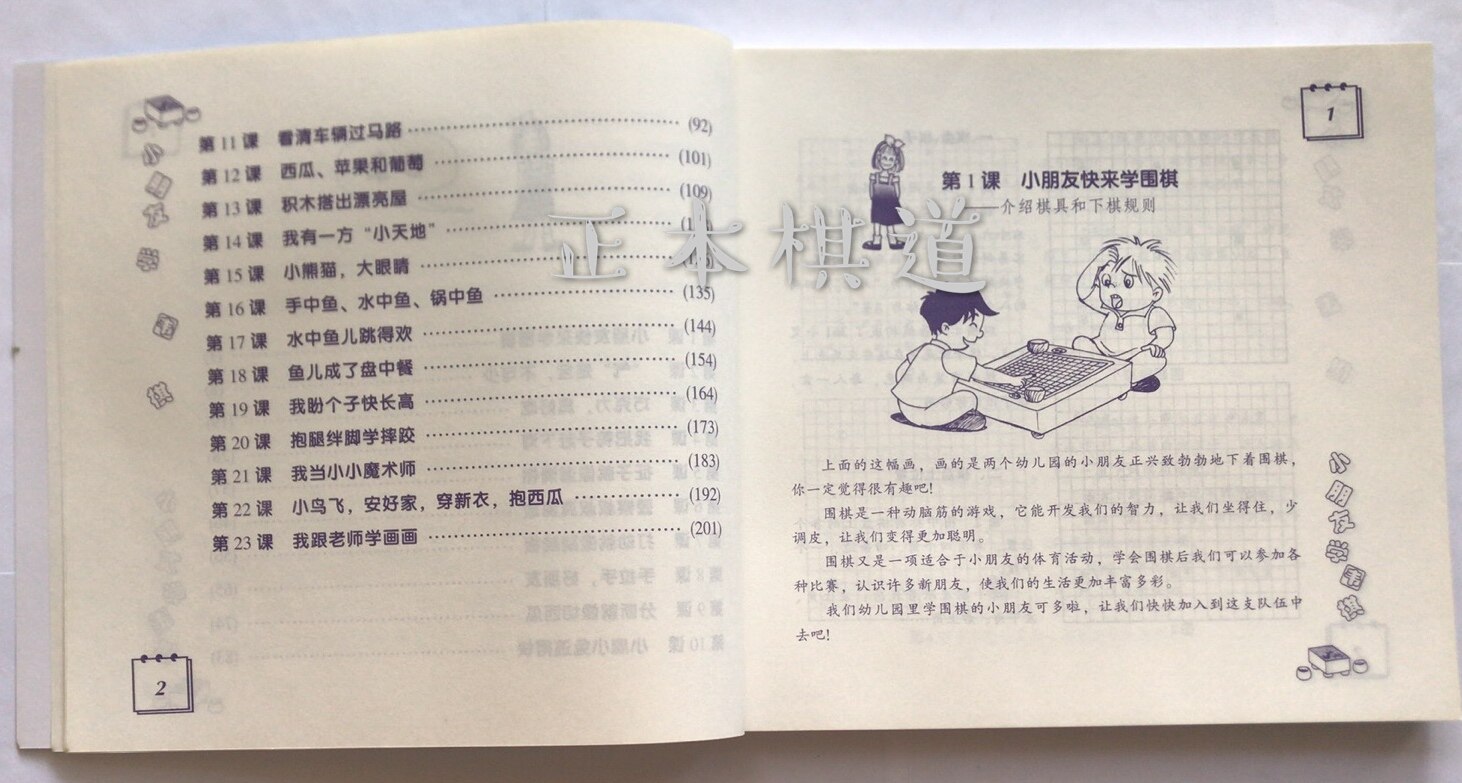 小朋友学围棋
第 11 课 看清车辆过马路 ⋯⋯ (92)
第 12 课 西瓜、苹果和葡萄 ⋯⋯ (101)
第 13 课 积木搭出漂亮屋 ⋯⋯ (109)
第 14 课 我有一方“小天地” ⋯⋯
第 15 课 小熊猫，大眼睛 ⋯⋯
第 16 课 手中鱼、水中鱼、锅中鱼 ⋯⋯ (135)
第 17 课 水中鱼儿跳得欢 ⋯⋯ (144)
第 18 课 鱼儿成了盘中餐 ⋯⋯ (154)
第 19 课 我盼个子快长高 ⋯⋯ (164)
第 20 课 抱腿绊脚学摔跤 ⋯⋯ (173)
第 21 课 我当小小魔术师 ⋯⋯ (183)
第 22 课 小鸟飞，安好家，穿新衣，抱西瓜 ⋯⋯ (192)
第 23 课 我跟老师学画画 ⋯⋯ (201)
2
正本棋道
1
第 1 课 小朋友快来学围棋
——介绍棋具和下棋规则
上面的这幅画，画的是两个幼儿园的小朋友正兴致勃勃地下着围棋，
你一定觉得很有趣吧！
围棋是一种动脑筋的游戏，它能开发我们的智力，让我们坐得住，少
调皮，让我们变得更加聪明。
围棋又是一项适合于小朋友的体育活动，学会围棋后我们可以参加各
种比赛，认识许多新朋友，使我们的生活更加丰富多彩。
我们幼儿园里学围棋的小朋友可多啦，让我们快快加入到这支队伍中
去吧！
小朋友学围棋